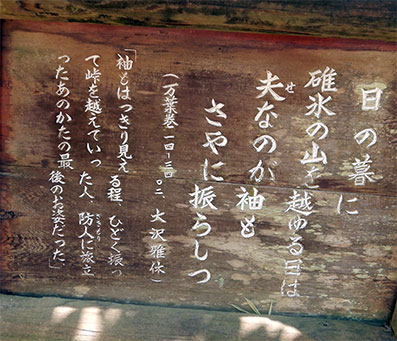 日の暮に
碓氷の山を越ゆる日は
夫なのが袖も
せ
さやに振らしつ
(万葉巻一四-三四〇二 大沢雅休)
「袖もはっきり見える程、ひどく振っ
て峠を越えていった人、防人に旅立
さきもり
ったあのかたの最後のお姿だった」